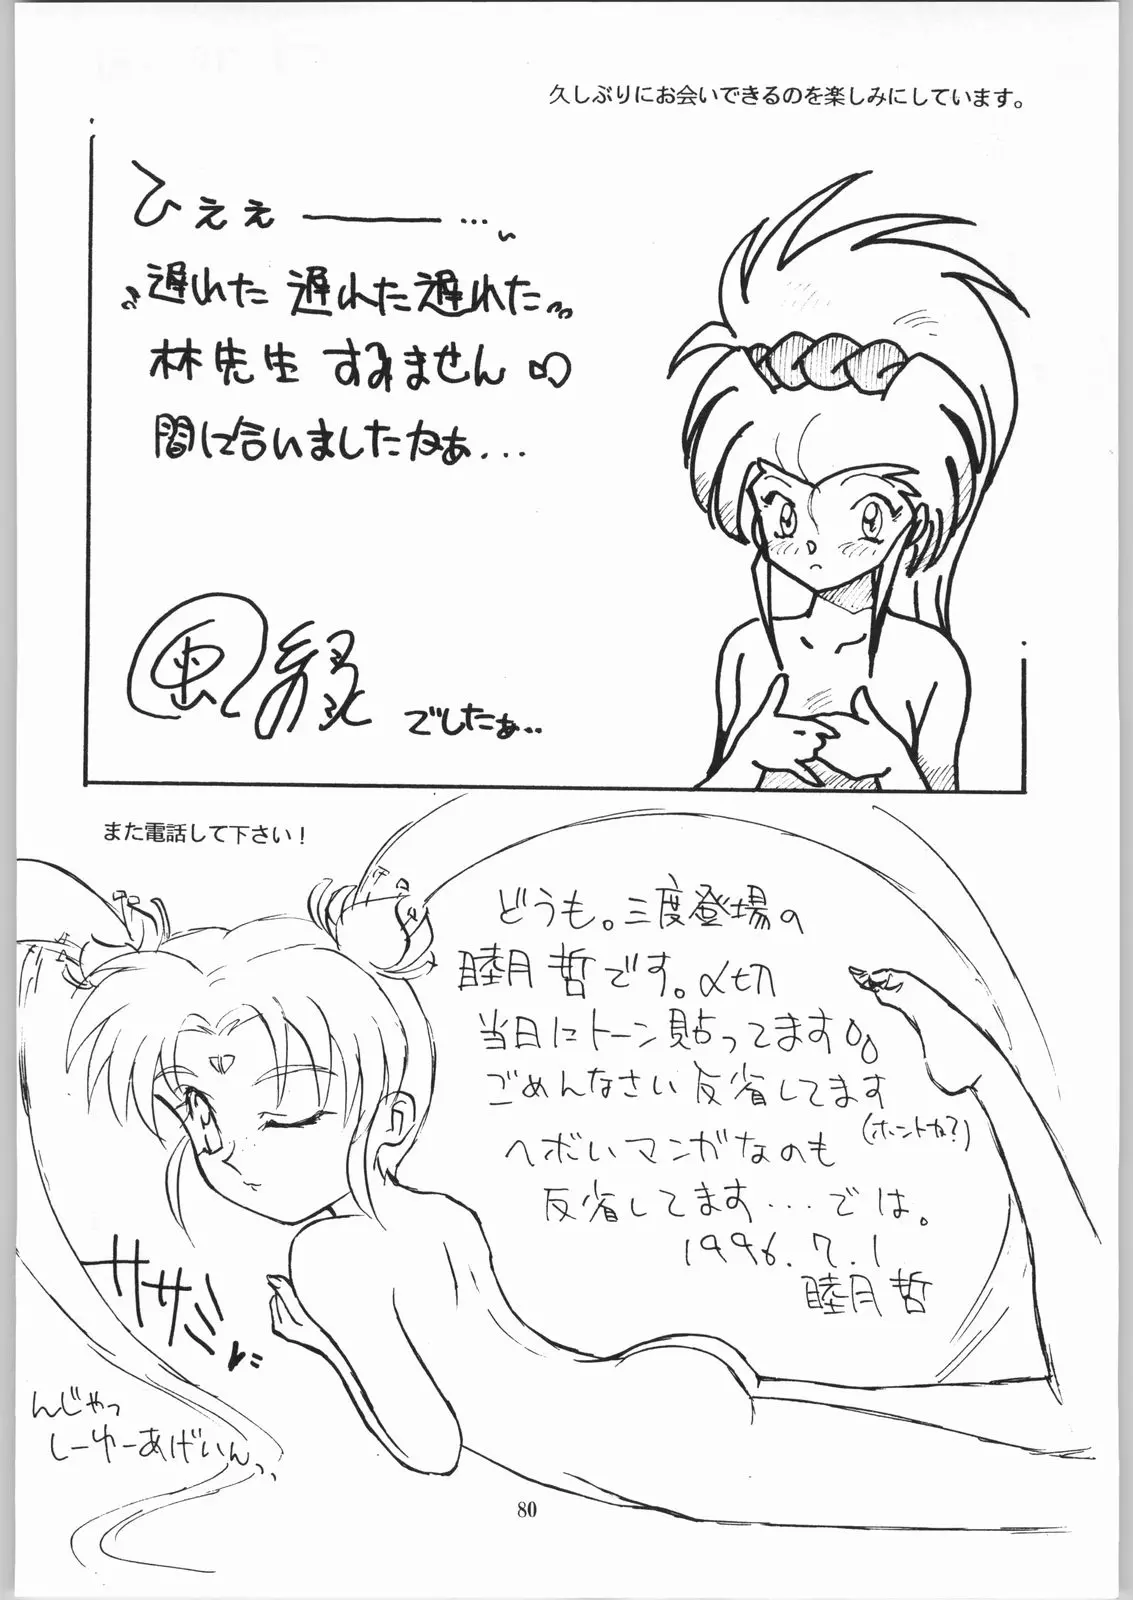 久しぶりにお会いできるのを楽しみにしています。
ひぇぇ――…
遅れた 遅れた 遅れた
林先生 すみません
間に合いましたかぁ...
でしたぁ..
また電話して下さい!
どうも。三度登場の
睦月 哲です。〆切
当日にトーン貼ってます
ごめんなさい 反省してます
(ホントか?)
ヘボいマンガなのも
反省してます...では。
1996.7.1
睦月 哲
ササッ
んじゃっ
しーゆーあげいんっ
80